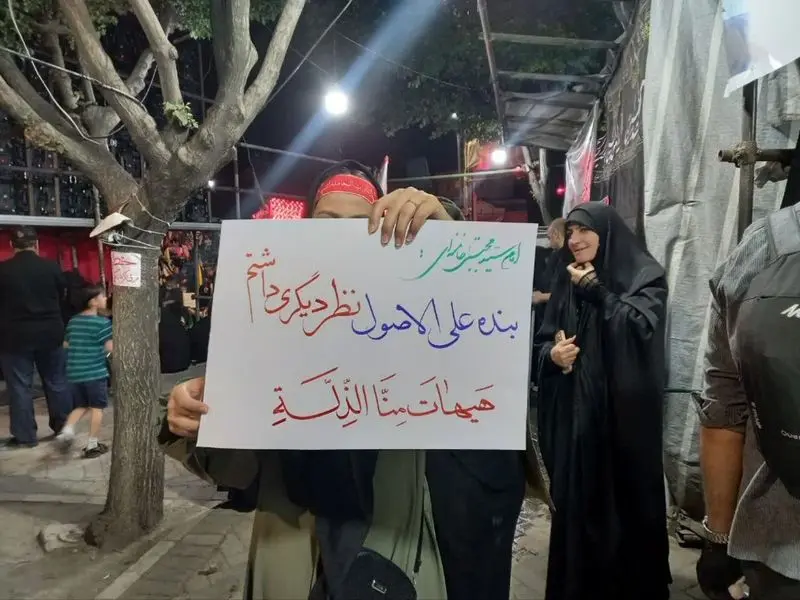 امام سید مجتبی خامنه‌ای :
بنده علی الاصول نظر دیگری داشتم
هَیهٰاتَ مِنَّا الذِّلَّة